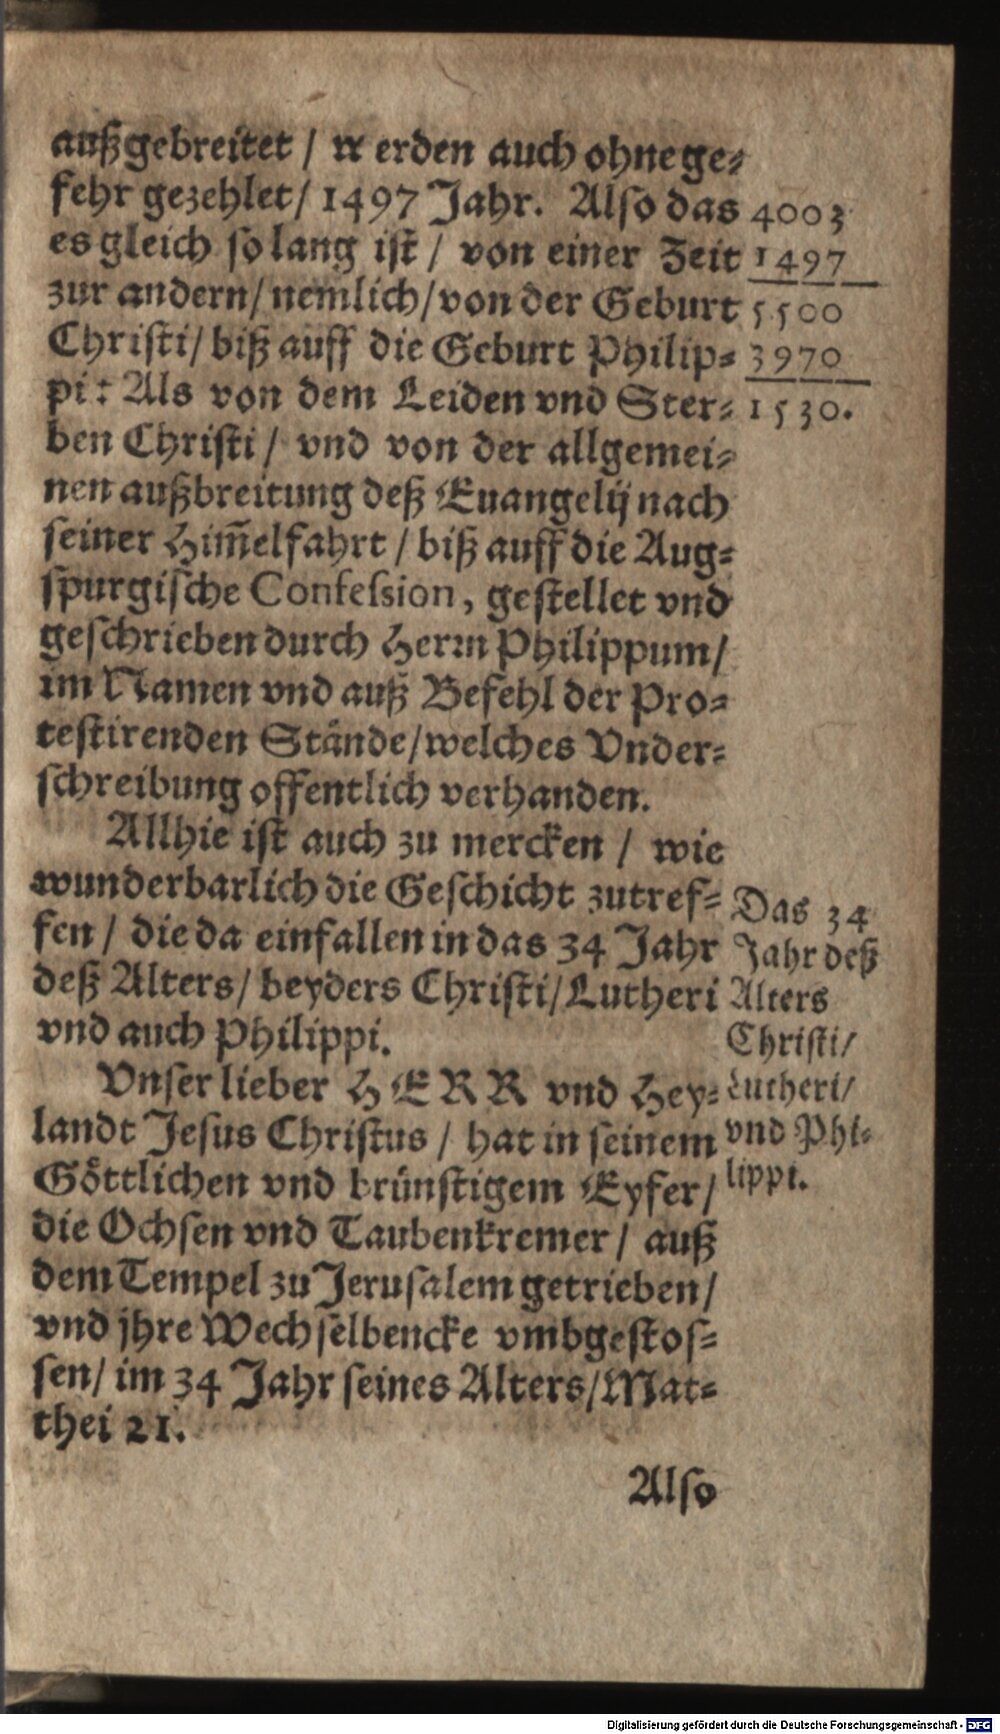 außgebreitet / werden auch ohnege⸗
fehr gezehlet / 1497 Jahr. Also das
es gleich so lang ist / von einer Zeit
zur andern / nemlich / von der Geburt
Christi / biß auff die Geburt Philip⸗
pi: Als von dem Leiden vnd Ster⸗
ben Christi / vnd von der allgemei⸗
nen außbreitung deß Euangelij nach
seiner Him̃elfahrt / biß auff die Aug⸗
spurgische Confession, gestellet vnd
geschrieben durch Herrn Philippum /
im Namen vnd auß Befehl der Pro⸗
testirenden Stände / welches Vnder⸗
schreibung offentlich verhanden.
Allhie ist auch zu mercken / wie
wunderbarlich die Geschicht zutref⸗
fen / die da einfallen in das 34 Jahr
deß Alters / beyders Christi / Lutheri
vnd auch Philippi.
Vnser lieber HERR vnd Hey⸗
landt Jesus Christus / hat in seinem
Göttlichen vnd brünstigem Eyfer /
die Ochsen vnd Taubenkremer / auß
dem Tempel zu Jerusalem getrieben /
vnd jhre Wechselbencke vmbgestos⸗
sen / im 34 Jahr seines Alters / Mat⸗
thei 21.
Also
4003
1497
5500
3970
1530.
Das 34
Jahr deß
Alters
Christi /
Lutheri /
vnd Phi⸗
lippi.
Digitalisierung gefördert durch die Deutsche Forschungsgemeinschaft - DFG